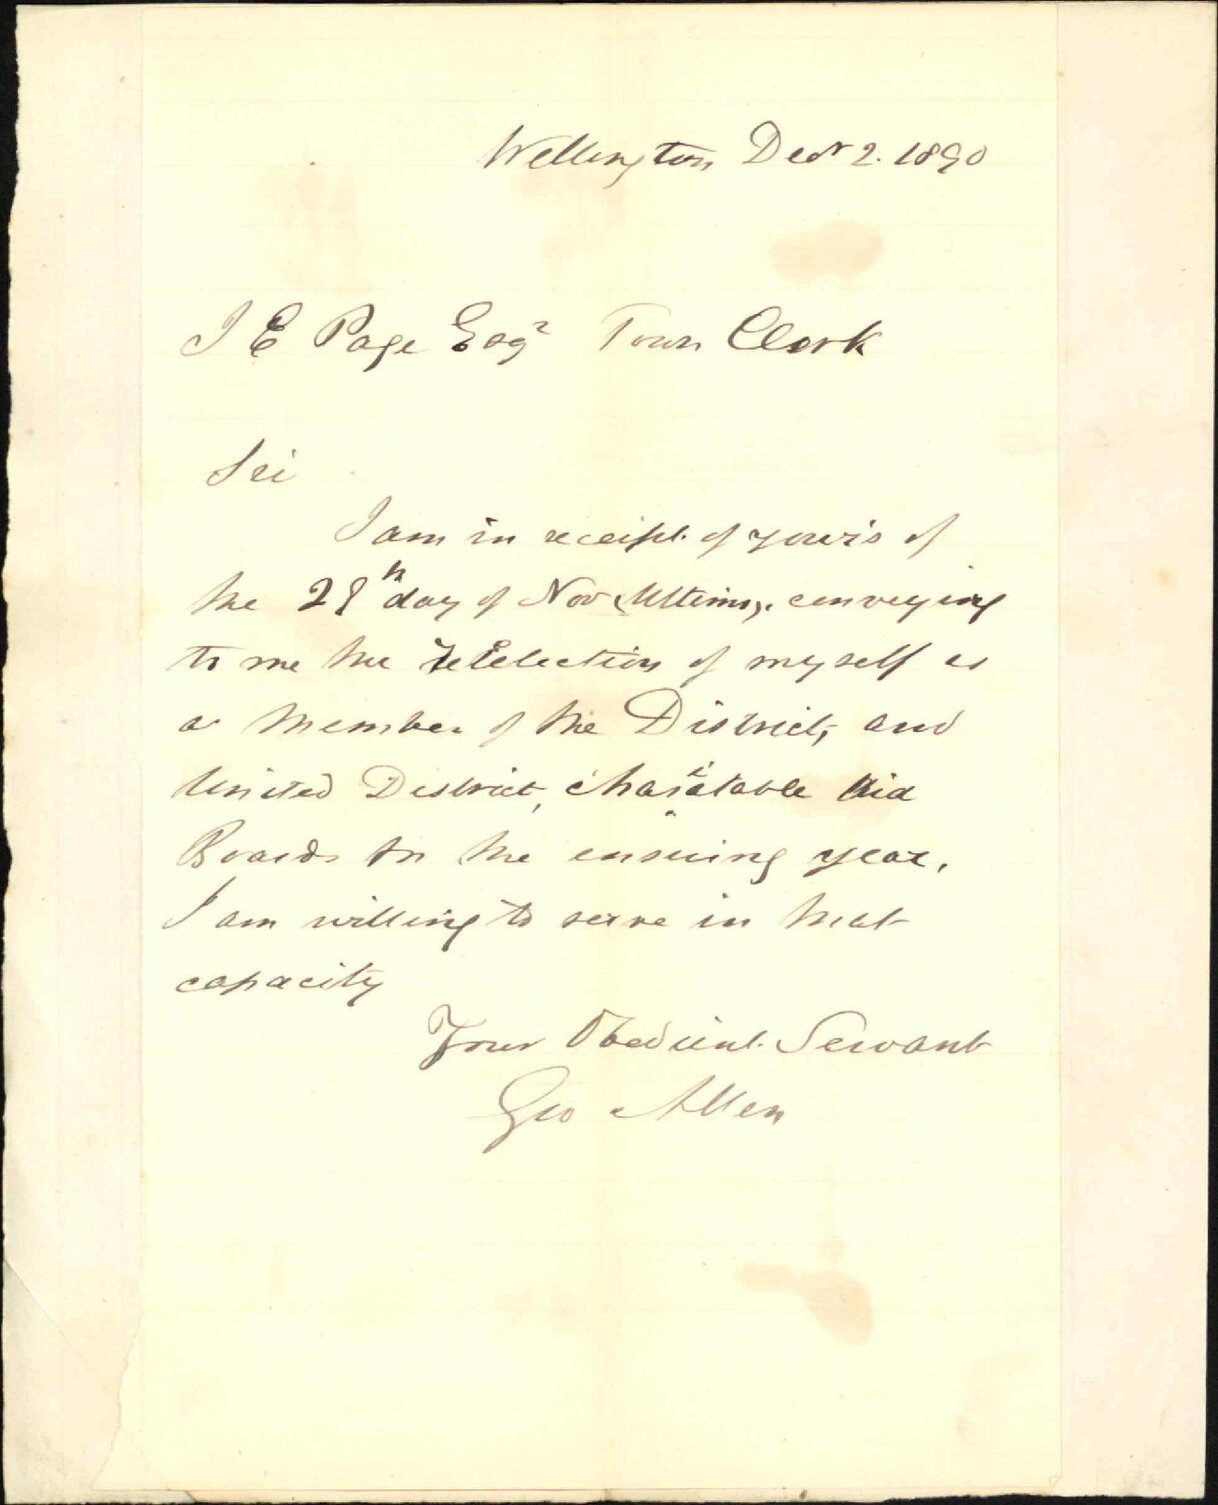 Wellington Decr 2. 1890
J E Page Esqr Town Clerk
Sir
I am in receipt of yours of
the 28th day of Nov Ultimo, conveying
to me the reElection of myself as
a Member of the District, and
United District, Charitable Aid
Boards for the ensuing year.
I am willing to serve in that
capacity
Your Obedient Servant
Geo Allen